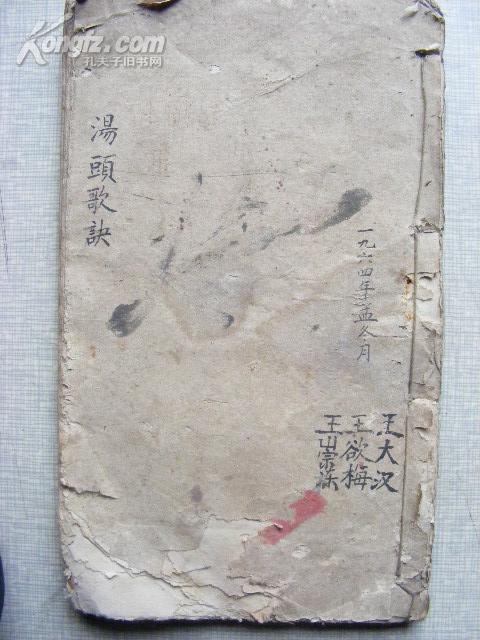 Kongfz.com
孔夫子旧书网
湯頭歌訣
一九六四年孟冬月
王大汉
王欲梅
王崇